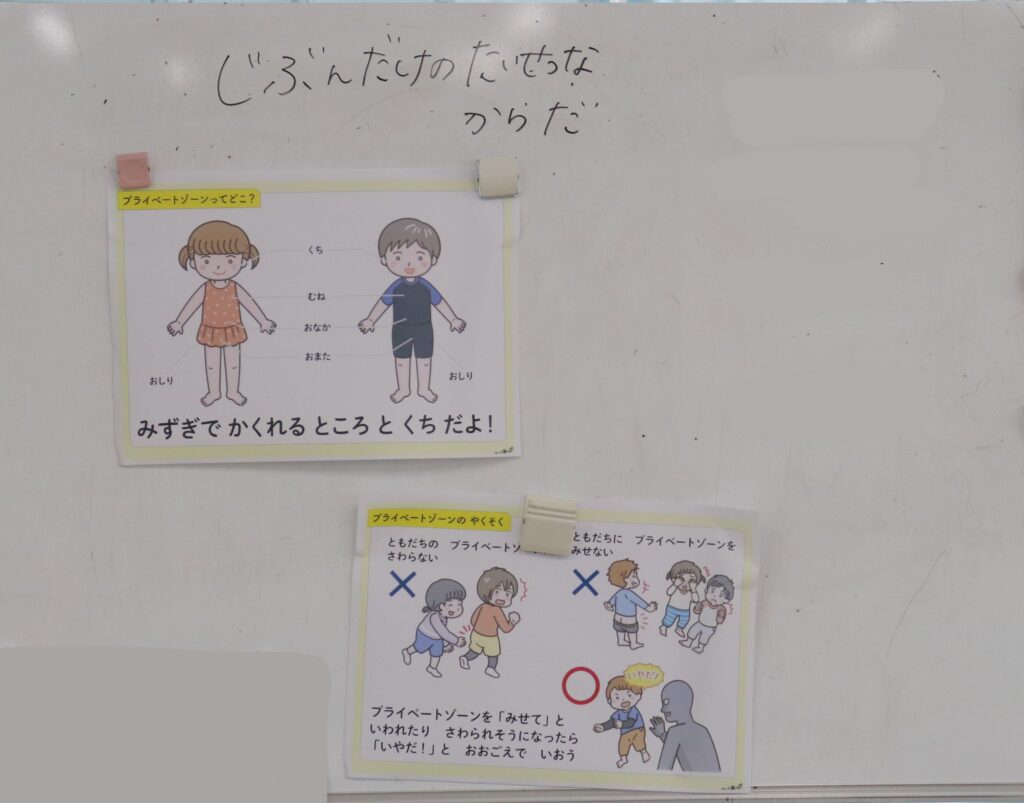 じぶんだけのたいせつな
からだ
プライベートゾーンってどこ?
くち
むね
おなか
おまた
おしり
おしり
みずぎで かくれる ところ と くち だよ!
プライベートゾーンの やくそく
ともだちの プライベートゾ
さわらない
ともだちに プライベートゾーンを
みせない
いやだ!
プライベートゾーンを「みせて」と
いわれたり さわられそうになったら
「いやだ!」と おおごえで いおう